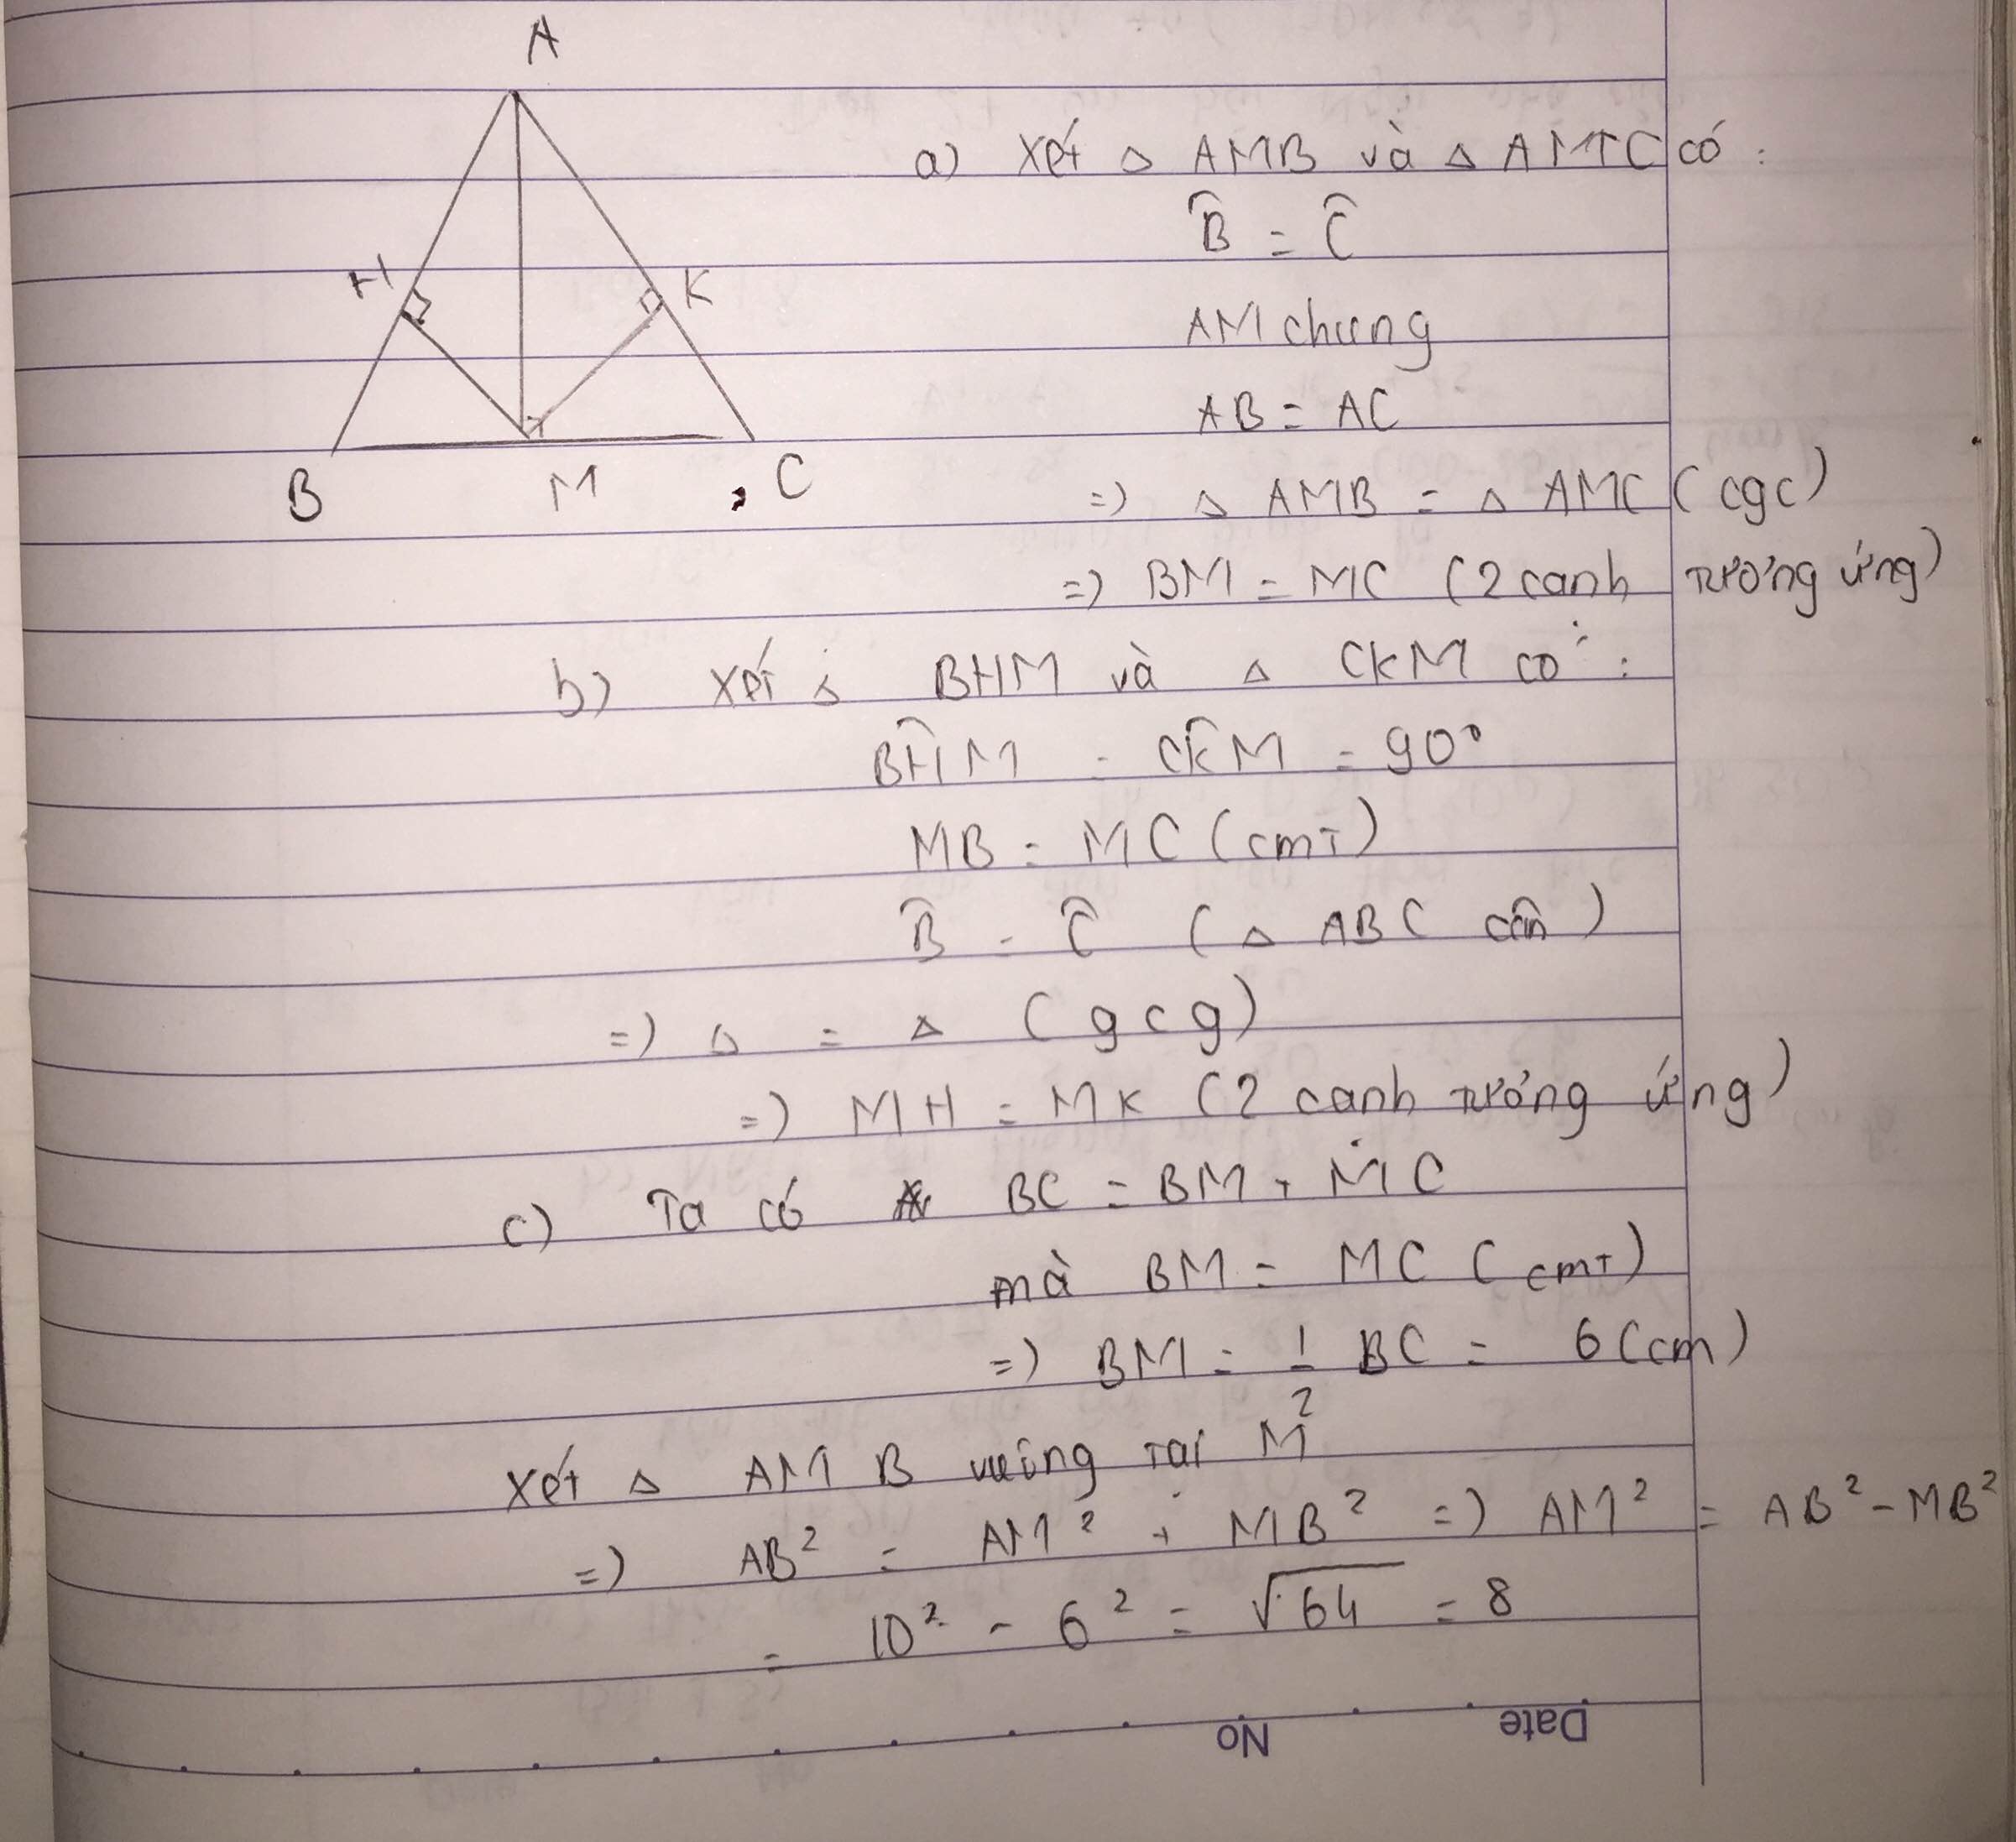 A
H
K
B
M
C
a) Xét △ AMB và △ AMC có :
B̂ = Ĉ
AM chung
AB = AC
=) △ AMB = △ AMC ( cgc )
=) BM = MC ( 2 cạnh tương ứng )
b) Xét △ BHM và △ CKM có :
BĤM = CK̂M = 90°
MB = MC ( cmt )
B̂ = Ĉ ( △ ABC cân )
=) △ = △ ( gcg )
=) MH = MK ( 2 cạnh tương ứng )
c) Ta có BC = BM + MC
mà BM = MC ( cmt )
=) BM = 1/2 BC = 6 (cm)
Xét △ AMB vuông tại M
=) AB² = AM² + MB² =) AM² = AB² - MB²
= 10² - 6² = √64 = 8
No
Date